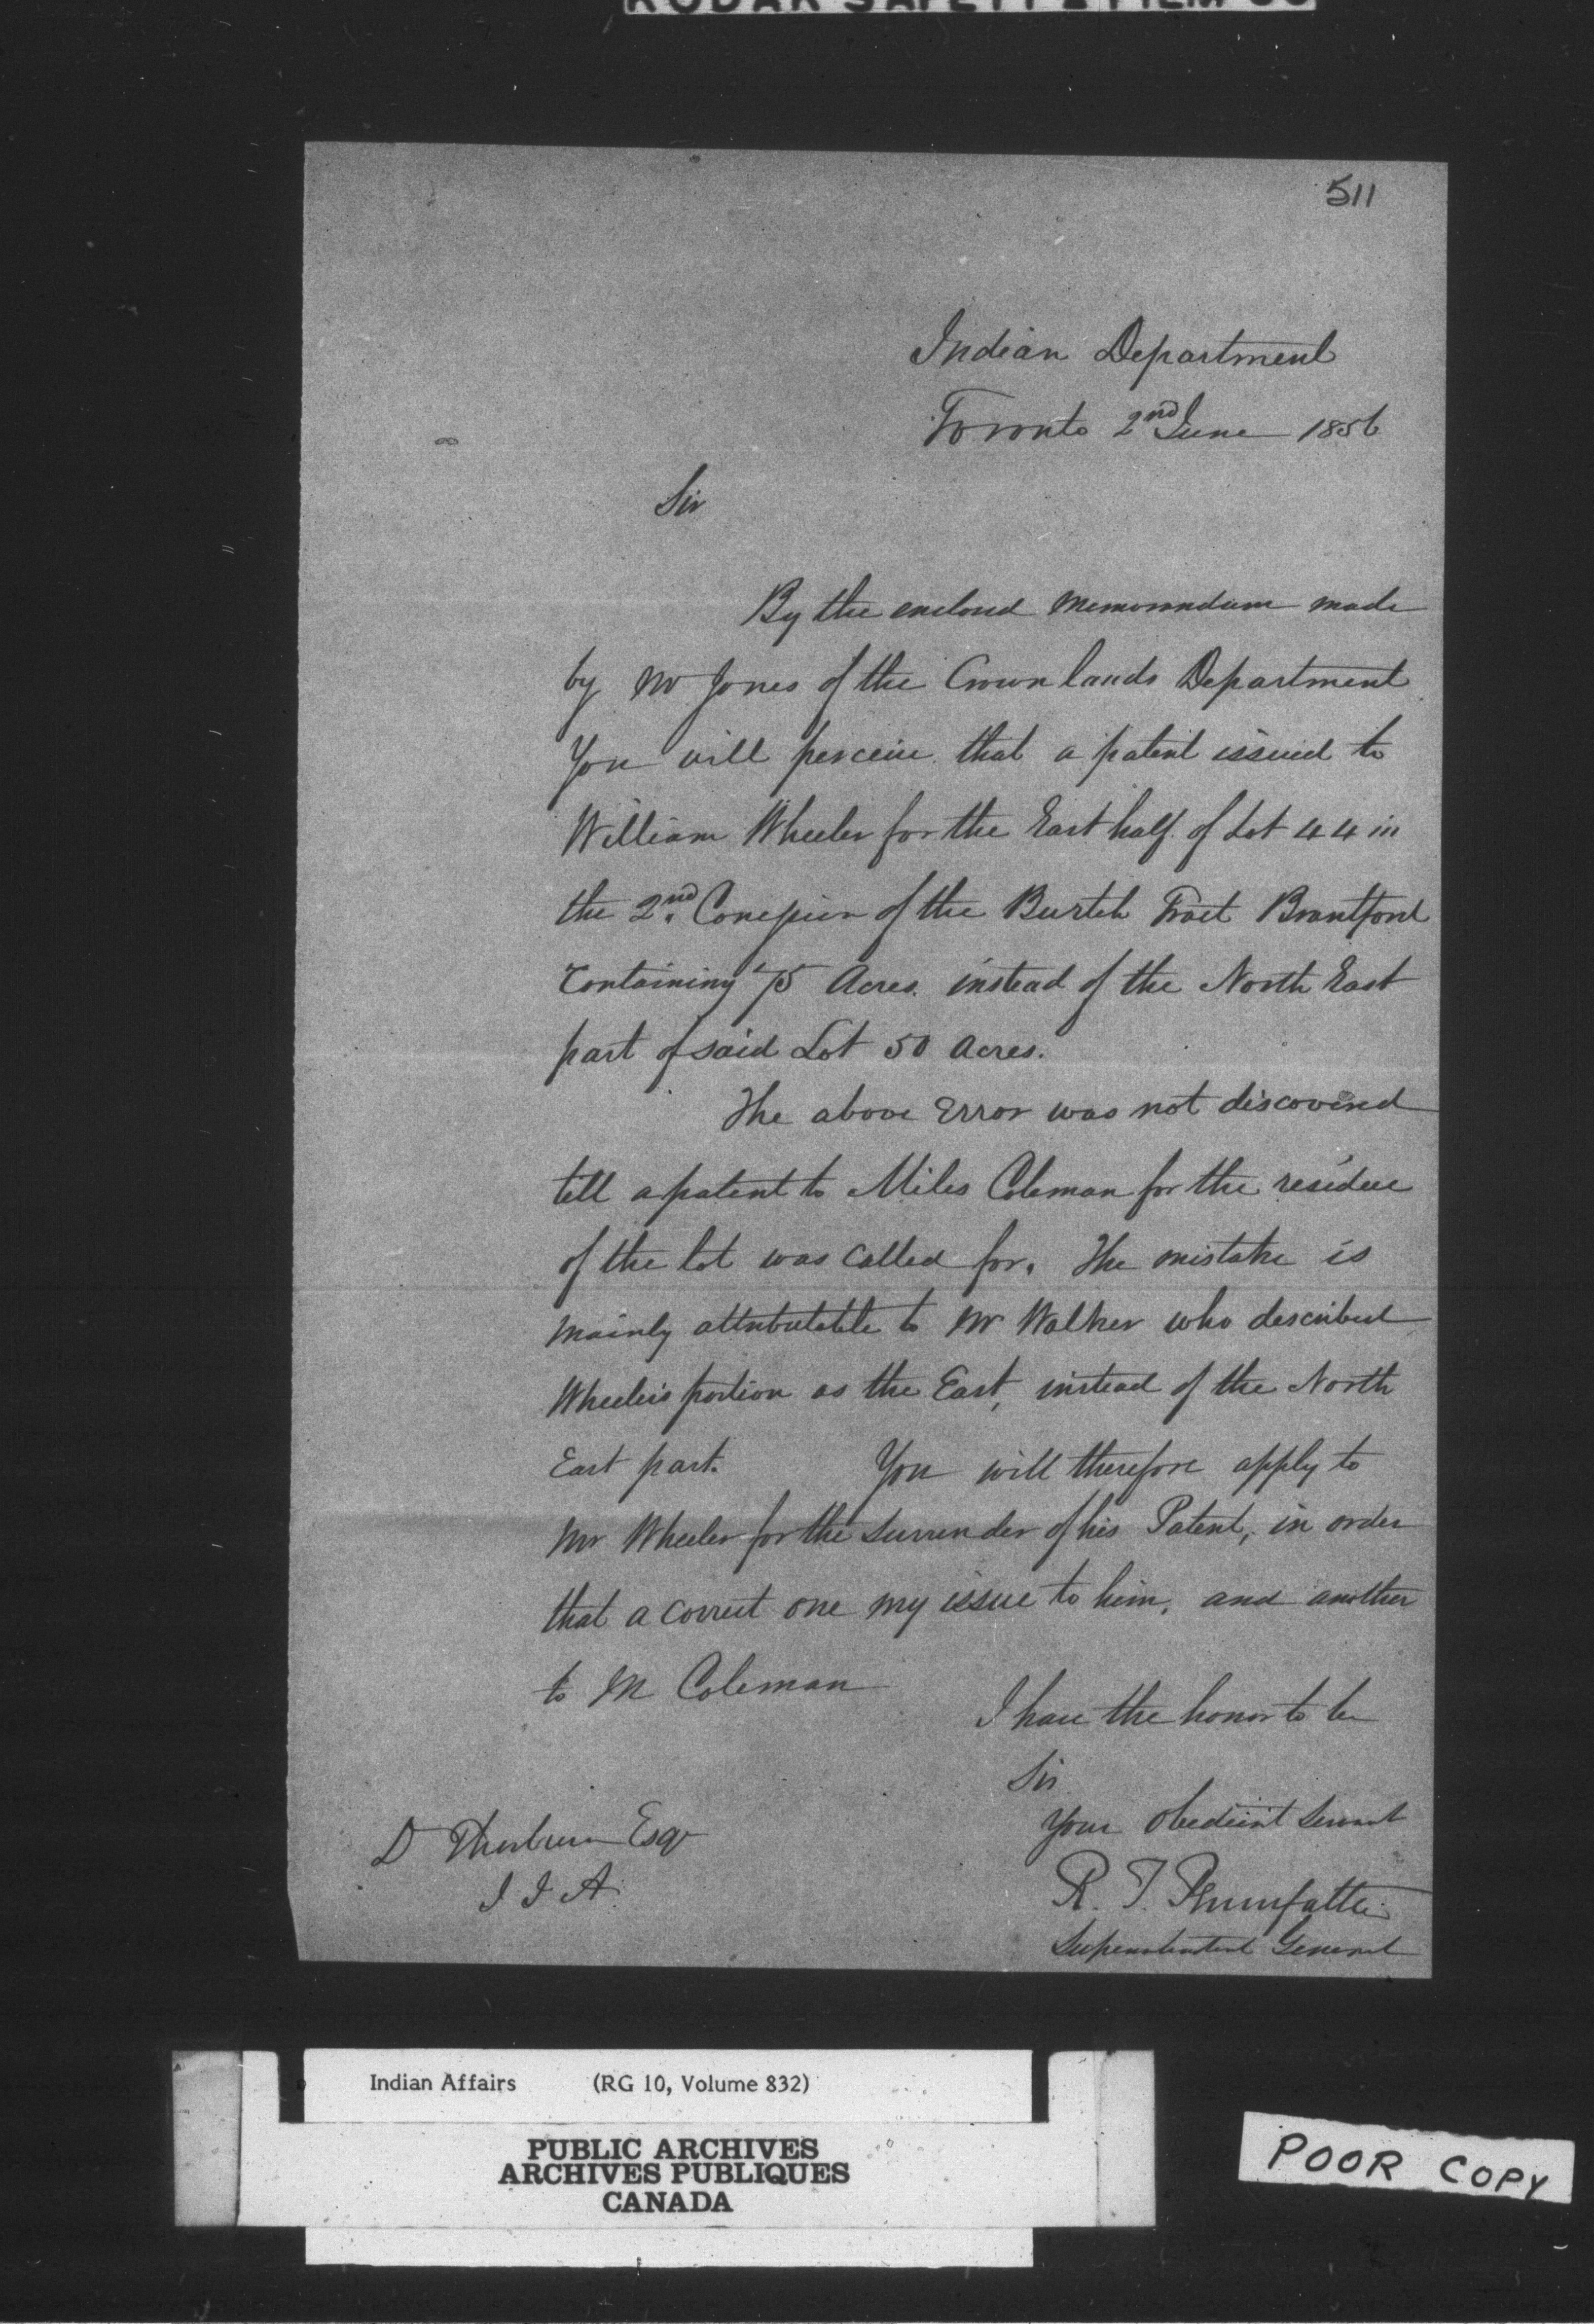 KODAK SAFETY FILM
511
Indian Department
Toronto 2nd June 1856
Sir
By the enclosed memorandum made
by Mr Jones of the Crown lands Department
You will perceive that a patent issued to
William Wheeler for the East half of Lot 44 in
the 2nd Concession of the Burtch Tract Brantford
Containing 75 Acres. instead of the North East
part of said Lot 50 Acres.
The above Error was not discovered
till a patent to Miles Coleman for the residue
of the lot was called for. The mistake is
mainly attributable to Mr Walker who described
Wheelers portion as the East, instead of the North
East part. You will therefore apply to
Mr Wheeler for the surrender of his Patent, in order
that a correct one my issue to him, and another
to M Coleman
I have the honor to be
Sir
Your obedient servant
D Thorburn Esqr
R. T. Pennefather
Superintendent General
Indian Affairs (RG 10, Volume 832)
PUBLIC ARCHIVES
ARCHIVES PUBLIQUES
CANADA
POOR COPY